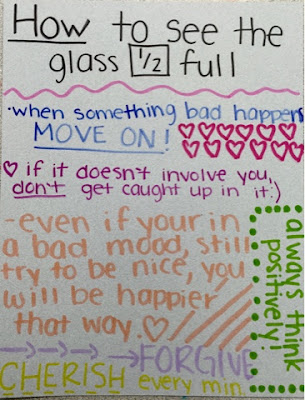 How to see the
glass 1/2 full
·when something bad happens
MOVE ON!
♡ if it doesn't involve you,
don't get caught up in it:)
-even if your in
a bad mood, still
try to be nice, you
will be happier
that way.♡
always think
positively!
→→→FORGIVE
CHERISH every min